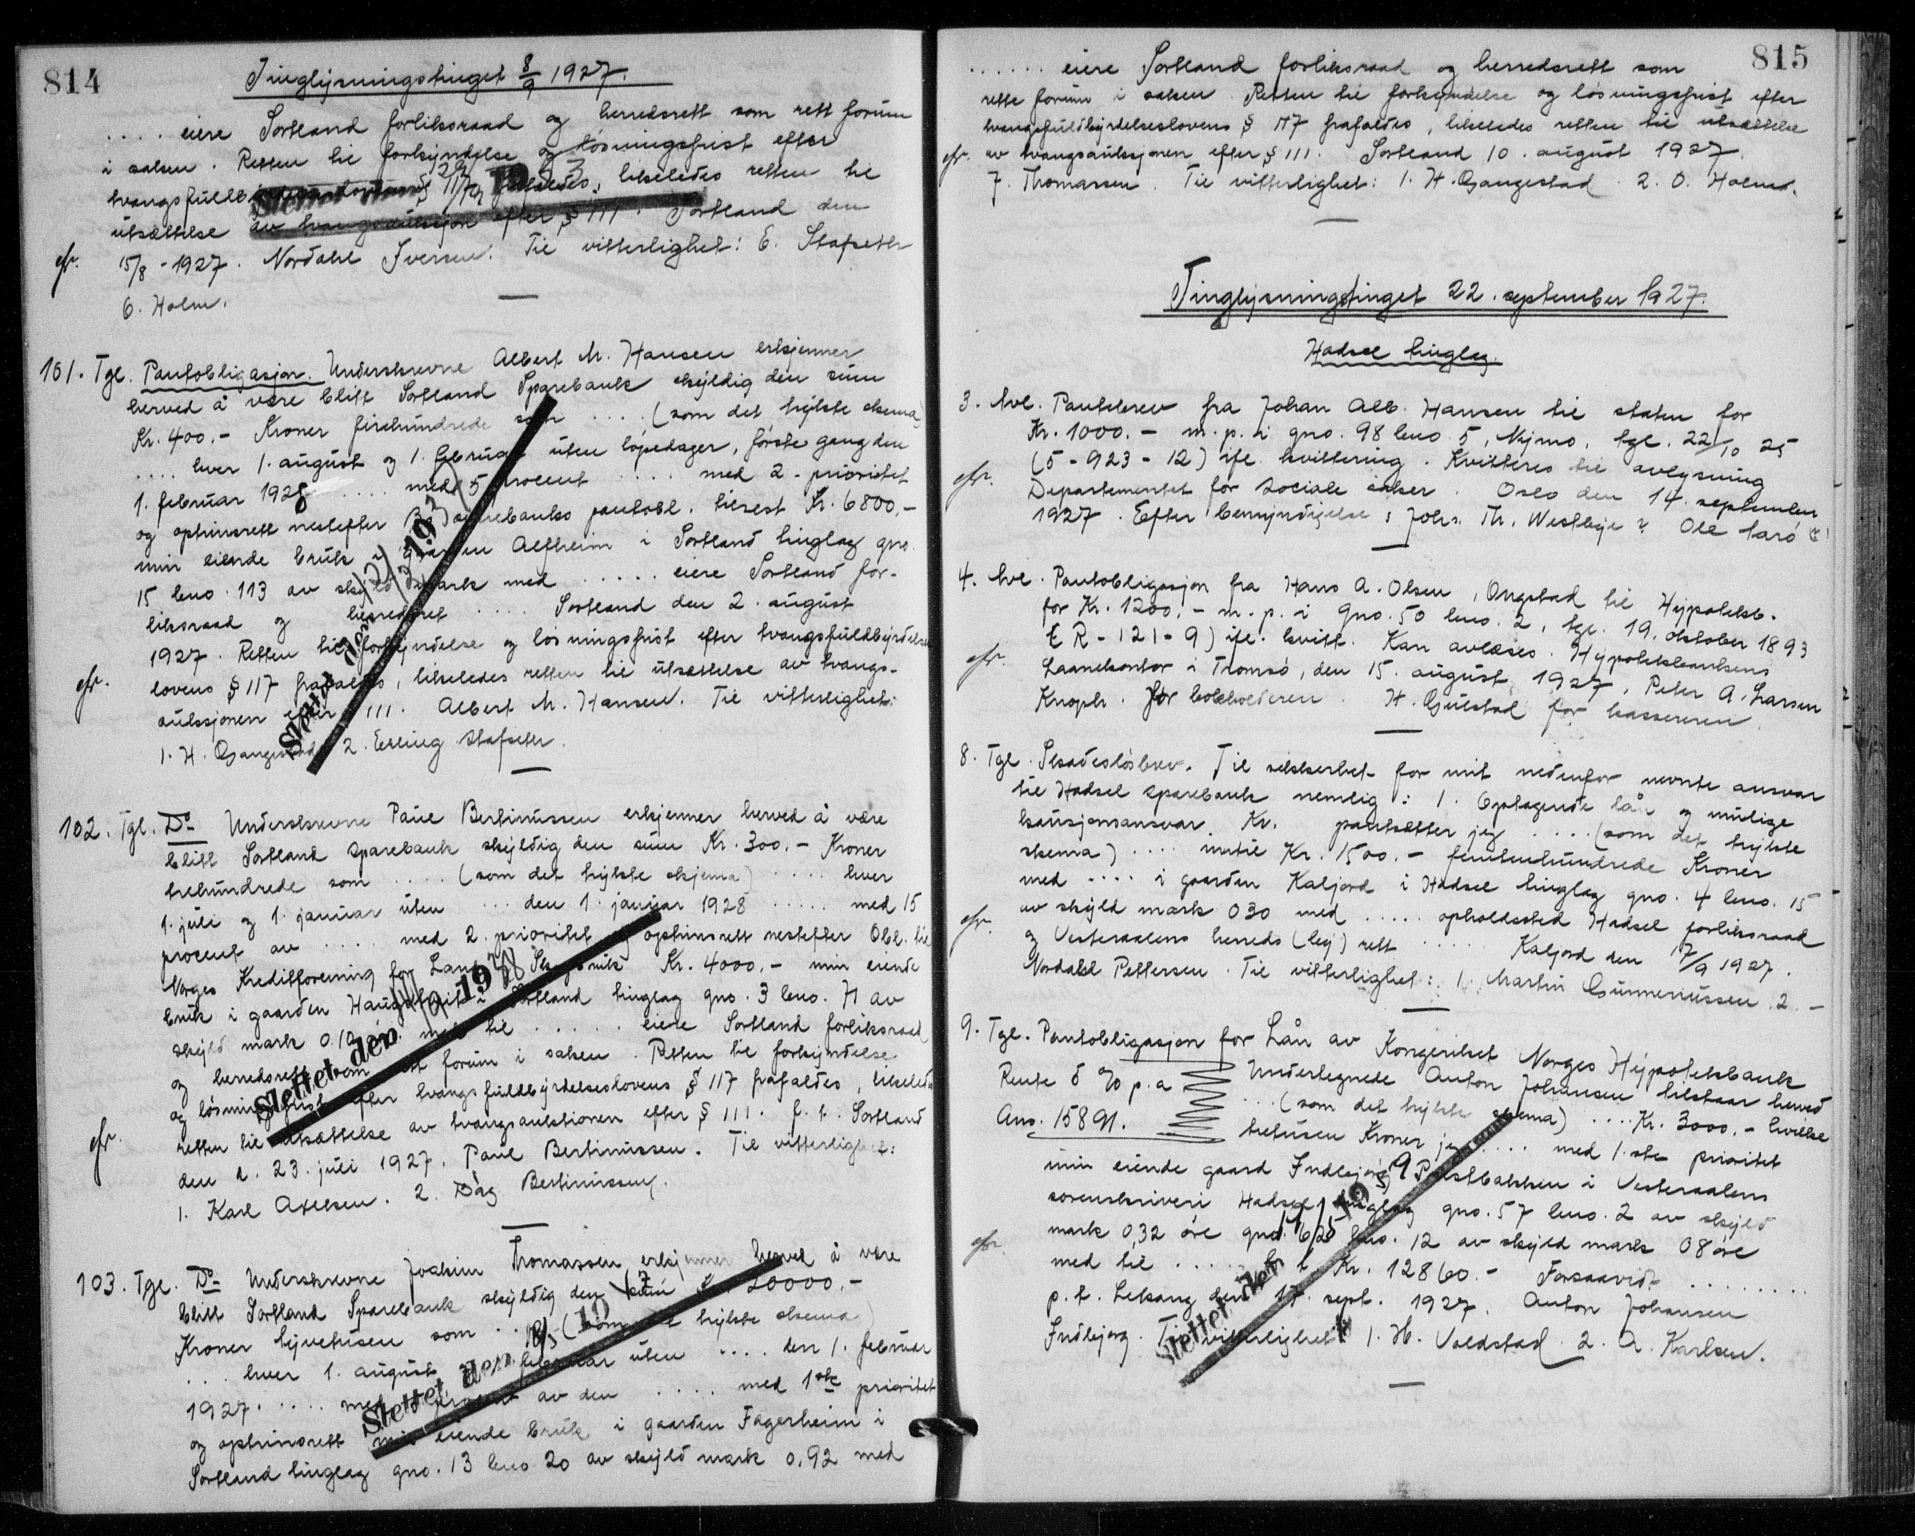 814
Tinglysningstinget 8/9 1927.
.... eiere Sortland forliksraad og herredsrett som rett forum
i saken. Retten til forkyndelse og løsningsfrist efter
tvangsfuldb § 117 frafaldes, likeledes retten til
utsættelse av tvangsauksjon efter § 111. Sortland den
cfr. 15/8 - 1927. Nordahl Iversen. Til vitterlighet: E. Stafseth
O. Holm.
101. Tgl. Pantobligasjon. Underskrevne Albert M. Hansen erkjenner
herved å være blitt Sortland Sparebank skyldig den sum
Kr. 400.- Kroner firehundrede som .... (som det trykte skema)
.... hver 1. august og 1. februar uten løpedager, første gang den
1. februar 1928 .... med 5 procent .... med 2. prioritet
og optrinsrett nestefter Sparebanks pantobl. tilrest Kr. 6800.-
min eiende bruk i gaarden Alfheim i Sortland tinglag gno.
15 bno. 113 av skyld mark med ..... eiere Sortland for-
liksraad og herredsret .... Sortland den 2. august
1927. Retten til forkyndelse og løsningsfrist efter tvangsfuldbyrdelses
cfr. lovens § 117 frafaldes, likeledes retten til utsættelse av tvangs-
auksjonen efter § 111. Albert M. Hansen. Til vitterlighet:
1. H. Gangestad 2. Erling Stafseth.
Slettet den 19
102. Tgl. Do Underskrevne Paul Bertinussen erkjenner herved å være
blitt Sortland Sparebank skyldig den sum Kr. 300.- Kroner
trehundrede som .... (som det trykte skjema) .... hver
1. juli og 1. januar uten ... den 1. januar 1928 ..... med 15
procent av .... med 2. prioritet og optrinsrett nestefter Obl. til
Norges Kreditforening for Land og Skogbruk Kr. 4000.- min eiende
bruk i gaarden i Sortland tinglag gno. 3 bno. 71 av
skyld mark 0.10 med til ..... eiere Sortland forliksraad
og herredsrett som rett forum i saken. Retten til forkyndelse
og løsningsfrist efter tvangsfuldbyrdelseslovens § 117 frafaldes, likeledes
cfr. retten til utsættelse av tvangsauktionen efter § 111. p. t. Sortland
den d. 23. juli 1927. Paul Bertinussen. Til vitterlighet:
1. Karl Axelsen. 2. Dag Bertinussen.
Slettet den 19
103. Tgl. Do Underskrevne Joakim Thomassen erkjenner herved å være
blitt Sortland Sparebank skyldig den sum Kr. 20000.-
Kroner tyvetusen som .... (som det trykte skema)
... hver 1. august februar uten .... den 1. februar
1927. .... med procent av den .... med 1ste prioritet
og optrinsrett min eiende bruk i gaarden Fagerheim i
Sortland tinglag gno. 13 bno 20 av skyld mark 0.92 med
Slettet den 19
815
...... eiere Sortland forliksraad og herredsrett som
rette forum i saken. Retten til forkyndelse og løsningsfrist efter
tvangsfuldbyrdelseslovens § 117 frafaldes, likeledes retten til utsættelse
cfr. av tvangsauksjonen efter § 111. Sortland 10. august 1927.
J. Thomassen. Til vitterlighet: 1. H. Gangestad. 2. O. Holm.
Tinglysningstinget 22. september 1927.
Hadsel tinglag.
3. Avl. Pantebrev fra Johan Alb. Hansen til staten for
Kr. 1000.- m. p. i gno. 98 bno. 5, Nymo, tgl. 22/10 25
(5-923-12) ifl. kvittering. Kvitteres til avlysning
cfr. Departementet for sociale saker. Oslo den 14. september
1927. Efter bemyndigelse: Johs. Th. Westbye
4. Avl. Pantobligasjon fra Hans A. Olsen, Ongstad til Hypotekb.
for Kr. 1200.- m. p. i gno. 50 bno. 2, tgl. 19. oktober 1893
(R-121-9) ifl. kvitt. Kan avlæses. Hypotekbankens
cfr. Laanekontor i Tromsø, den 15. august 1927. Peter A. Larsen
Knoph. for bokholderen. H. Gulstad for kassereren.
8. Tgl. Skadesløsbrev. Til sikkerhet for mit nedenfor nevnte ansvar
til Hadsel sparebank nemlig: 1. Optagende lån og mulige
kausjonsansvar. Kr. pantsætter jeg .... (som det trykte
skema) .... inntil Kr. 1500.- femtenhundrede Kroner
med .... i gaarden Kaljord i Hadsel tinglag gno. 4 bno. 15
av skyld mark 030 med ..... opholdssted Hadsel forliksraad
cfr. og Vesteraalens herreds (by) rett ..... Kaljord den 17/9 1927.
Nordahl Pettersen. Til vitterlighet: 1. Martin Gunneriussen 2. -
9. Tgl. Pantobligasjon for Lån av Kongeriket Norges Hypotekbank
Rente 6 % p.a Undertegnede Anton Johansen tilstaar herved
... (som det trykte skema) .... Kr. 3000.- hvilke
Ans. 15891.
tretusen Kroner jeg .... med 1.ste prioritet
min eiende gaard Indbjørg, Prestbakken i Vesteraalens
sorenskriveri Hadsel tinglag gno. 57 bno. 2 av skyld
mark 0,32 øre gno. bno. 12 av skyld mark 08 øre
cfr. med til ...... Kr. 12860.- Forsaavidt ........
p. t. den 17. sept. 1927. Anton Johansen
Indbjørg. Til vitterlighet 1. H. Valdstad. 2. A. Karlsen.
Slettet den 19